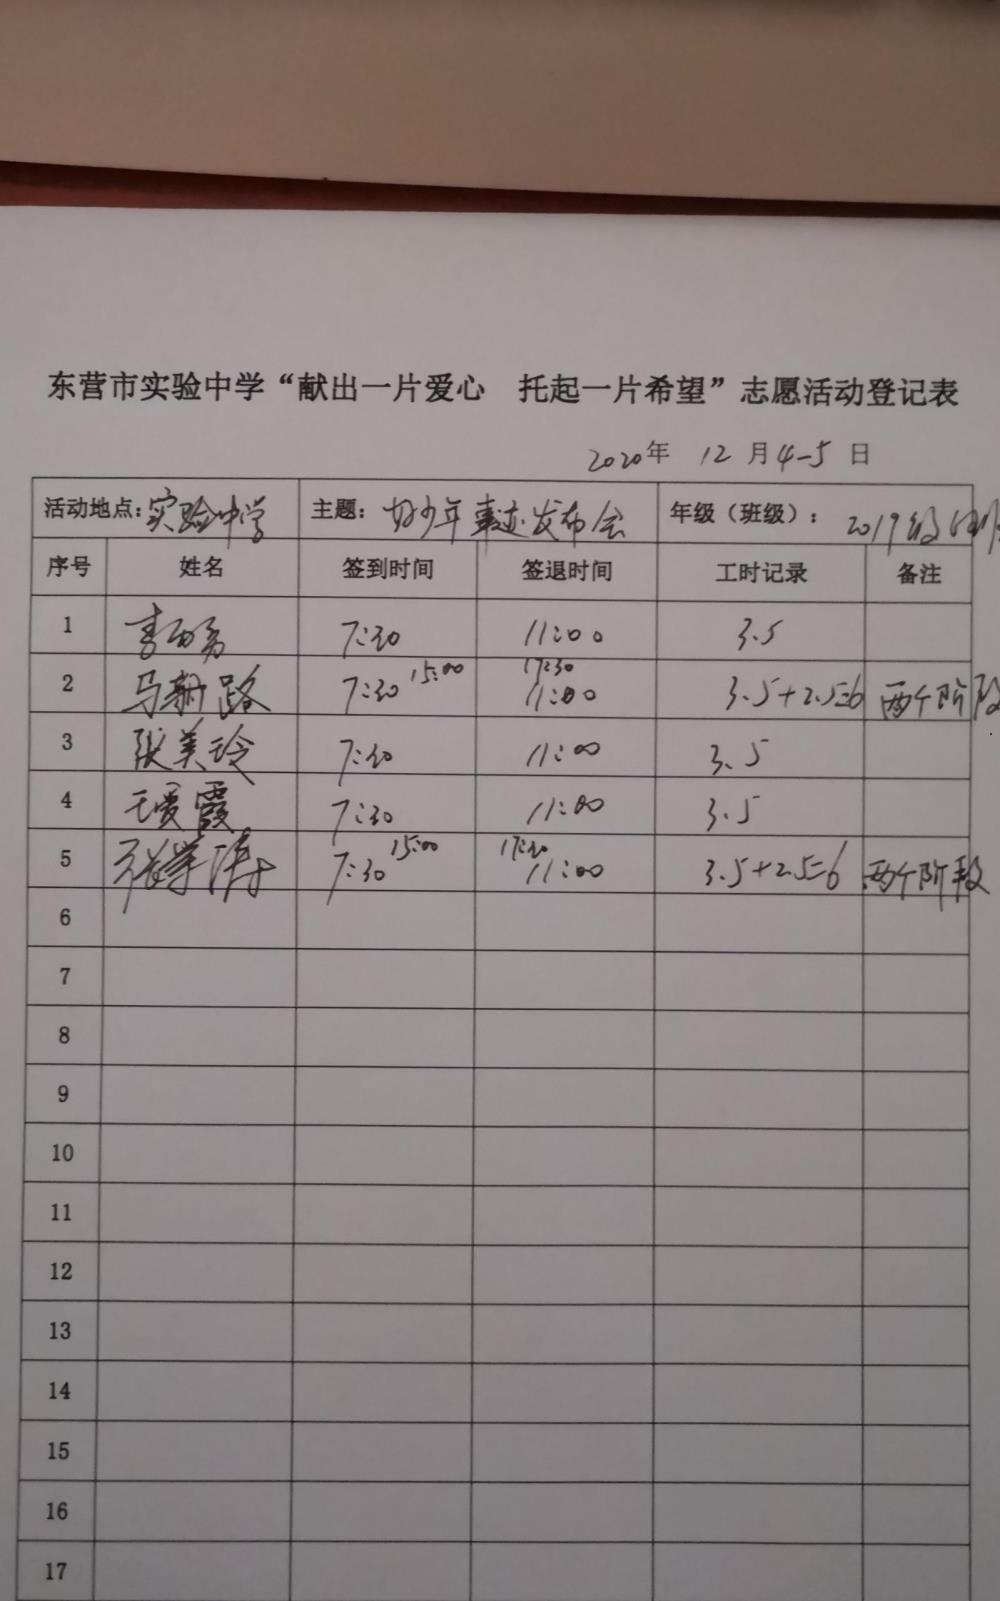 东营市实验中学“献出一片爱心 托起一片希望”志愿活动登记表
2020年 12月4-5日
活动地点：实验中学 主题：好少年事迹发布会 年级（班级）： 2019级
序号 姓名 签到时间 签退时间 工时记录 备注
1 7:30 11:00 3.5
15:00 17:30
2 马新路 7:30 11:00 3.5+2.5=6 两个阶段
3 张美玲 7:30 11:00 3.5
4 王爱霞 7:30 11:00 3.5
15:00 17:30
5 张学涛 7:30 11:00 3.5+2.5=6 两个阶段
6
7
8
9
10
11
12
13
14
15
16
17